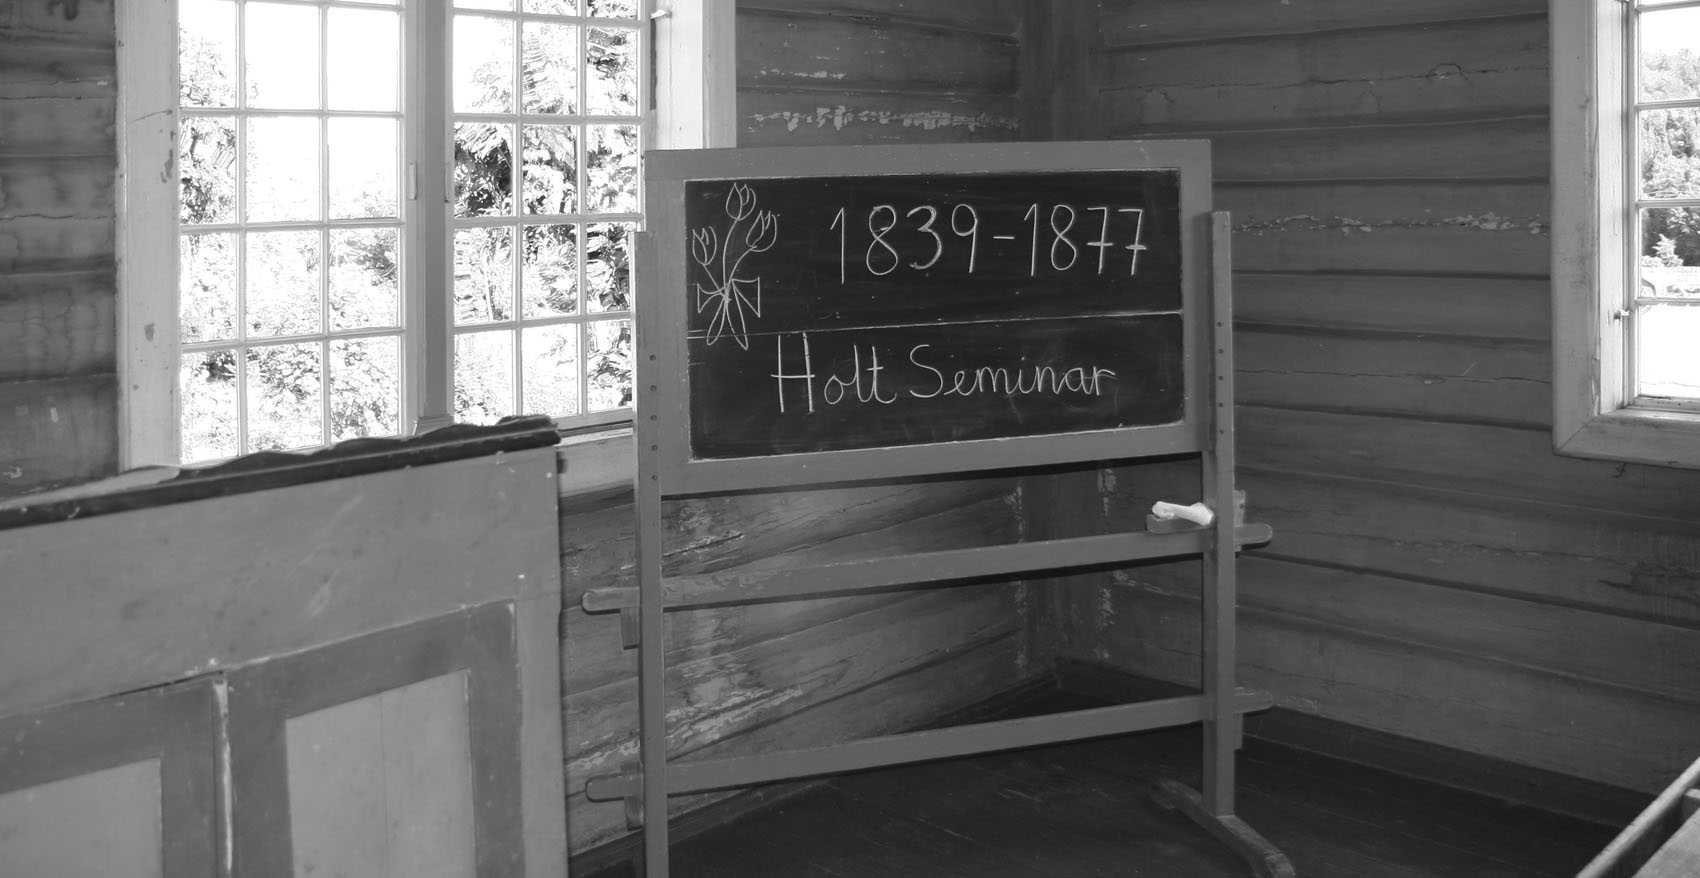 1839-1877
Holt Seminar